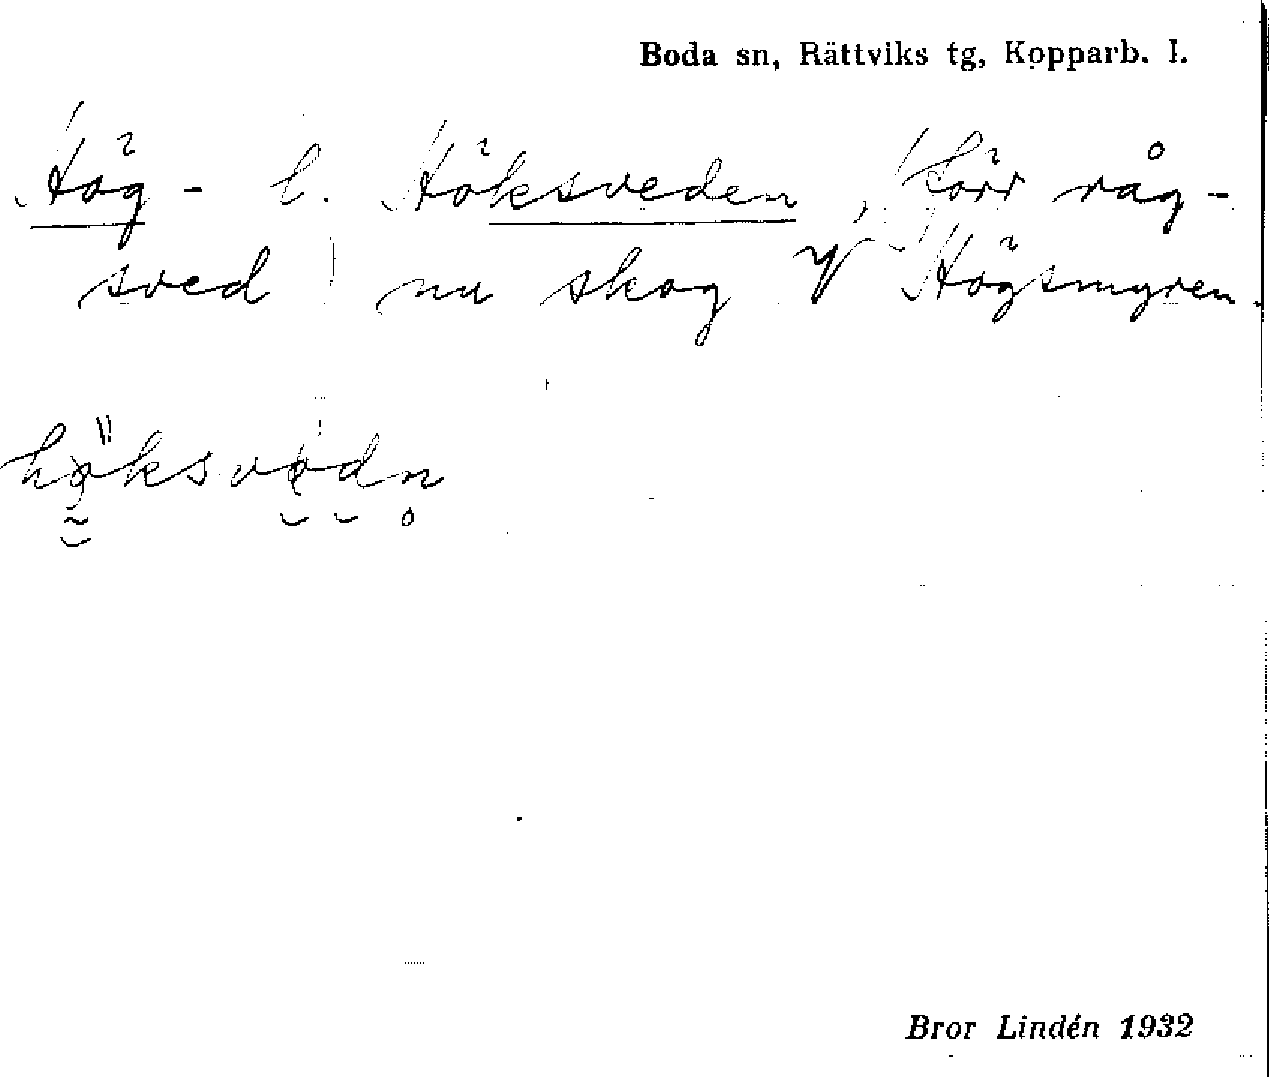 Boda sn, Rättviks tg, Kopparb. l.
Hög- l. Höksveden, förr råg-
sved, nu skog V Högsmyren.
höksvədn
Bror Lindén 1932